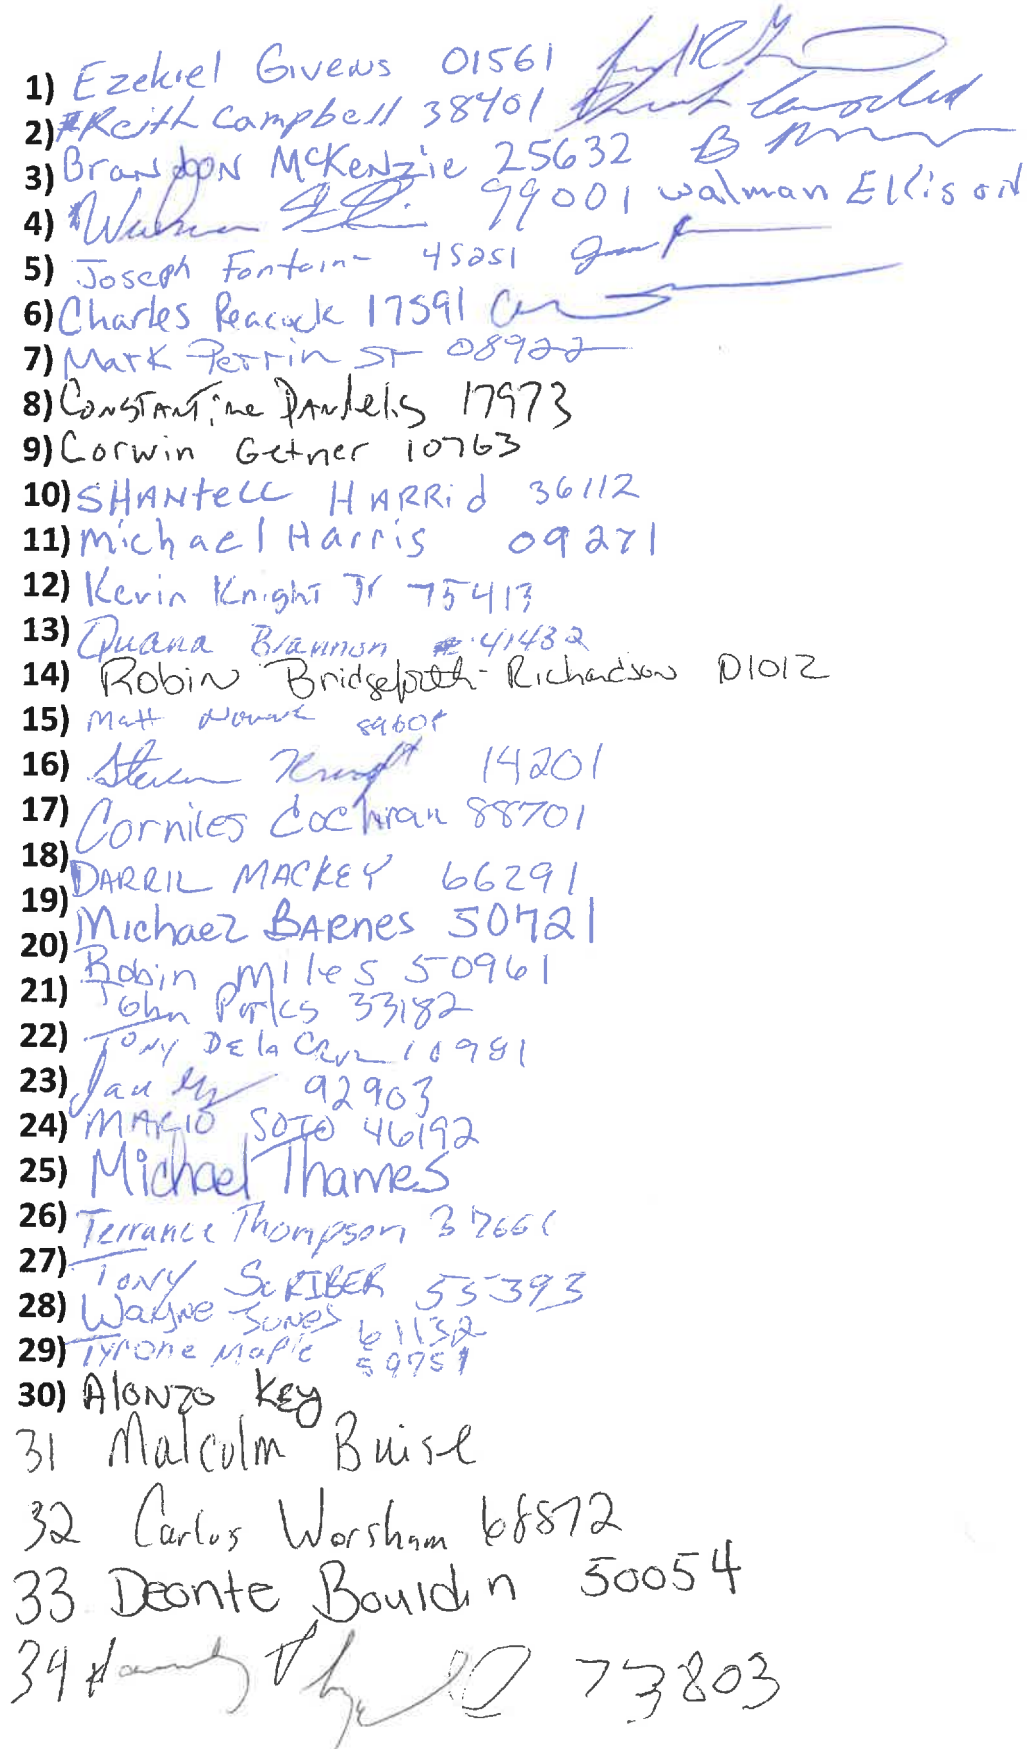 1) Ezekiel Givens 01561
2) Keith Campbell 38401
3) Brandon McKenzie 25632 B
4) 99001 Walman Ellison
5) Joseph Fontain 45251
6) Charles Peacock 17591
7) Mark Perrin Sr 08922
8) Constantine Pandelis 17973
9) Corwin Getner 10763
10) SHANtell HARRid 36112
11) Michael Harris 09271
12) Kevin Knight Jr 75413
13) Quana Brannon # 41432
14) Robin Bridgeforth-Richardson D1012
15) Matt
16) Steven 14201
17) Corniles Cochran 88701
18) DARRIL MACKEY 66291
19) Michael BARNES 50721
20) Robin Miles 50961
21) John Parks 33182
22) Tony De la Cruz 10981
23) 92903
24) MARIO SOTO 46192
25) Michael Thames
26) Terrance Thompson 37661
27) TONY ScRIBER 55393
28) Wayne Jones 61132
29) Tyrone Maple 59751
30) Alonzo Key
31 Malcolm Buise
32 Carlos Worsham 68872
33 Deonte Bouldin 50054
34 73803